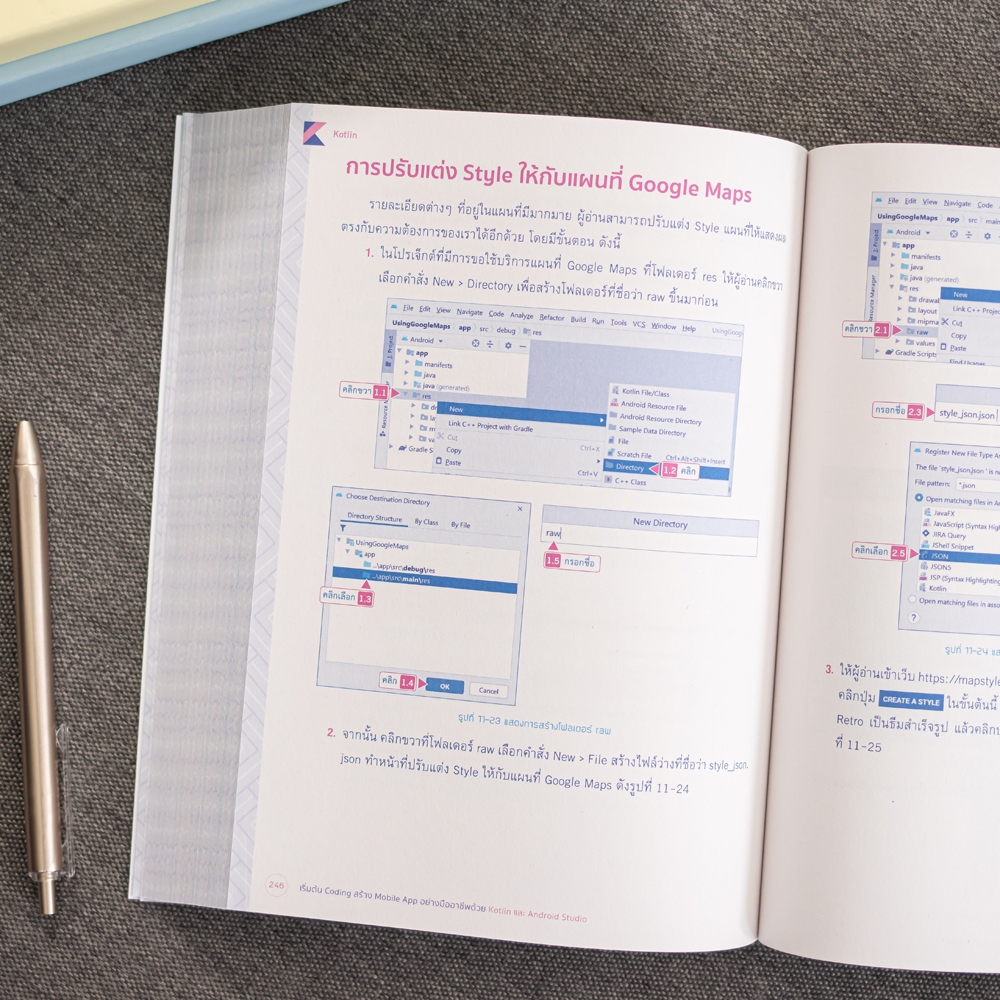 Kotlin
การปรับแต่ง Style ให้กับแผนที่ Google Maps
รายละเอียดต่างๆ ที่อยู่ในแผนที่มีมากมาย ผู้อ่านสามารถปรับแต่ง Style แผนที่ให้แสดงผล
ตรงกับความต้องการของเราได้อีกด้วย โดยมีขั้นตอน ดังนี้
1. ในโปรเจ็กต์ที่มีการขอใช้บริการแผนที่ Google Maps ที่โฟลเดอร์ res ให้ผู้อ่านคลิกขวา
เลือกคำสั่ง New > Directory เพื่อสร้างโฟลเดอร์ที่ชื่อว่า raw ขึ้นมาก่อน
File Edit View Navigate Code Analyze Refactor Build Run Tools VCS Window Help UsingGoog
UsingGoogleMaps app src debug res
Android
1: Project
app
manifests
java
java (generated)
คลิกขวา 1.1
res
New
Link C++ Project with Gradle
Cut Ctrl+X
Copy
Paste Ctrl+V
Gradle S
Kotlin File/Class
Android Resource File
Android Resource Directory
Sample Data Directory
File
Scratch File Ctrl+Alt+Shift+Insert
Directory 1.2 คลิก
C++ Class
Choose Destination Directory
Directory Structure By Class By File
UsingGoogleMaps
app
..\app\src\debug\res
..\app\src\main\res
คลิกเลือก 1.3
คลิก 1.4 OK Cancel
New Directory
raw
1.5 กรอกชื่อ
รูปที่ 11-23 แสดงการสร้างโฟลเดอร์ raw
2. จากนั้น คลิกขวาที่โฟลเดอร์ raw เลือกคำสั่ง New > File สร้างไฟล์ว่างที่ชื่อว่า style_json.
json ทำหน้าที่ปรับแต่ง Style ให้กับแผนที่ Google Maps ดังรูปที่ 11-24
246 เริ่มต้น Coding สร้าง Mobile App อย่างมืออาชีพด้วย Kotlin และ Android Studio
File Edit View Navigate Code
UsingGoogleMaps app src main
Android
1: Project
Resource Manager
app
manifests
java
java (generated)
res
drawal
layout
mipma
คลิกขวา 2.1
raw
values
Gradle Scripts
New
Link C++ Projec
Cut
Copy
Paste
Find Usages
กรอกชื่อ 2.3
style_json.json
Register New File Type As
The file 'style_json.json' is n
File pattern: *.json
Open matching files in
JavaFX
JavaScript (Syntax High
JIRA Query
JShell Snippet
คลิกเลือก 2.5
JSON
JSON5
JSP (Syntax Highlighting
Kotlin
Open matching files in asso
?
รูปที่ 11-24 แส
3. ให้ผู้อ่านเข้าเว็บ https://mapstyle
คลิกปุ่ม CREATE A STYLE ในขั้นตันนี้
Retro เป็นธีมสำเร็จรูป แล้วคลิกป
ที่ 11-25